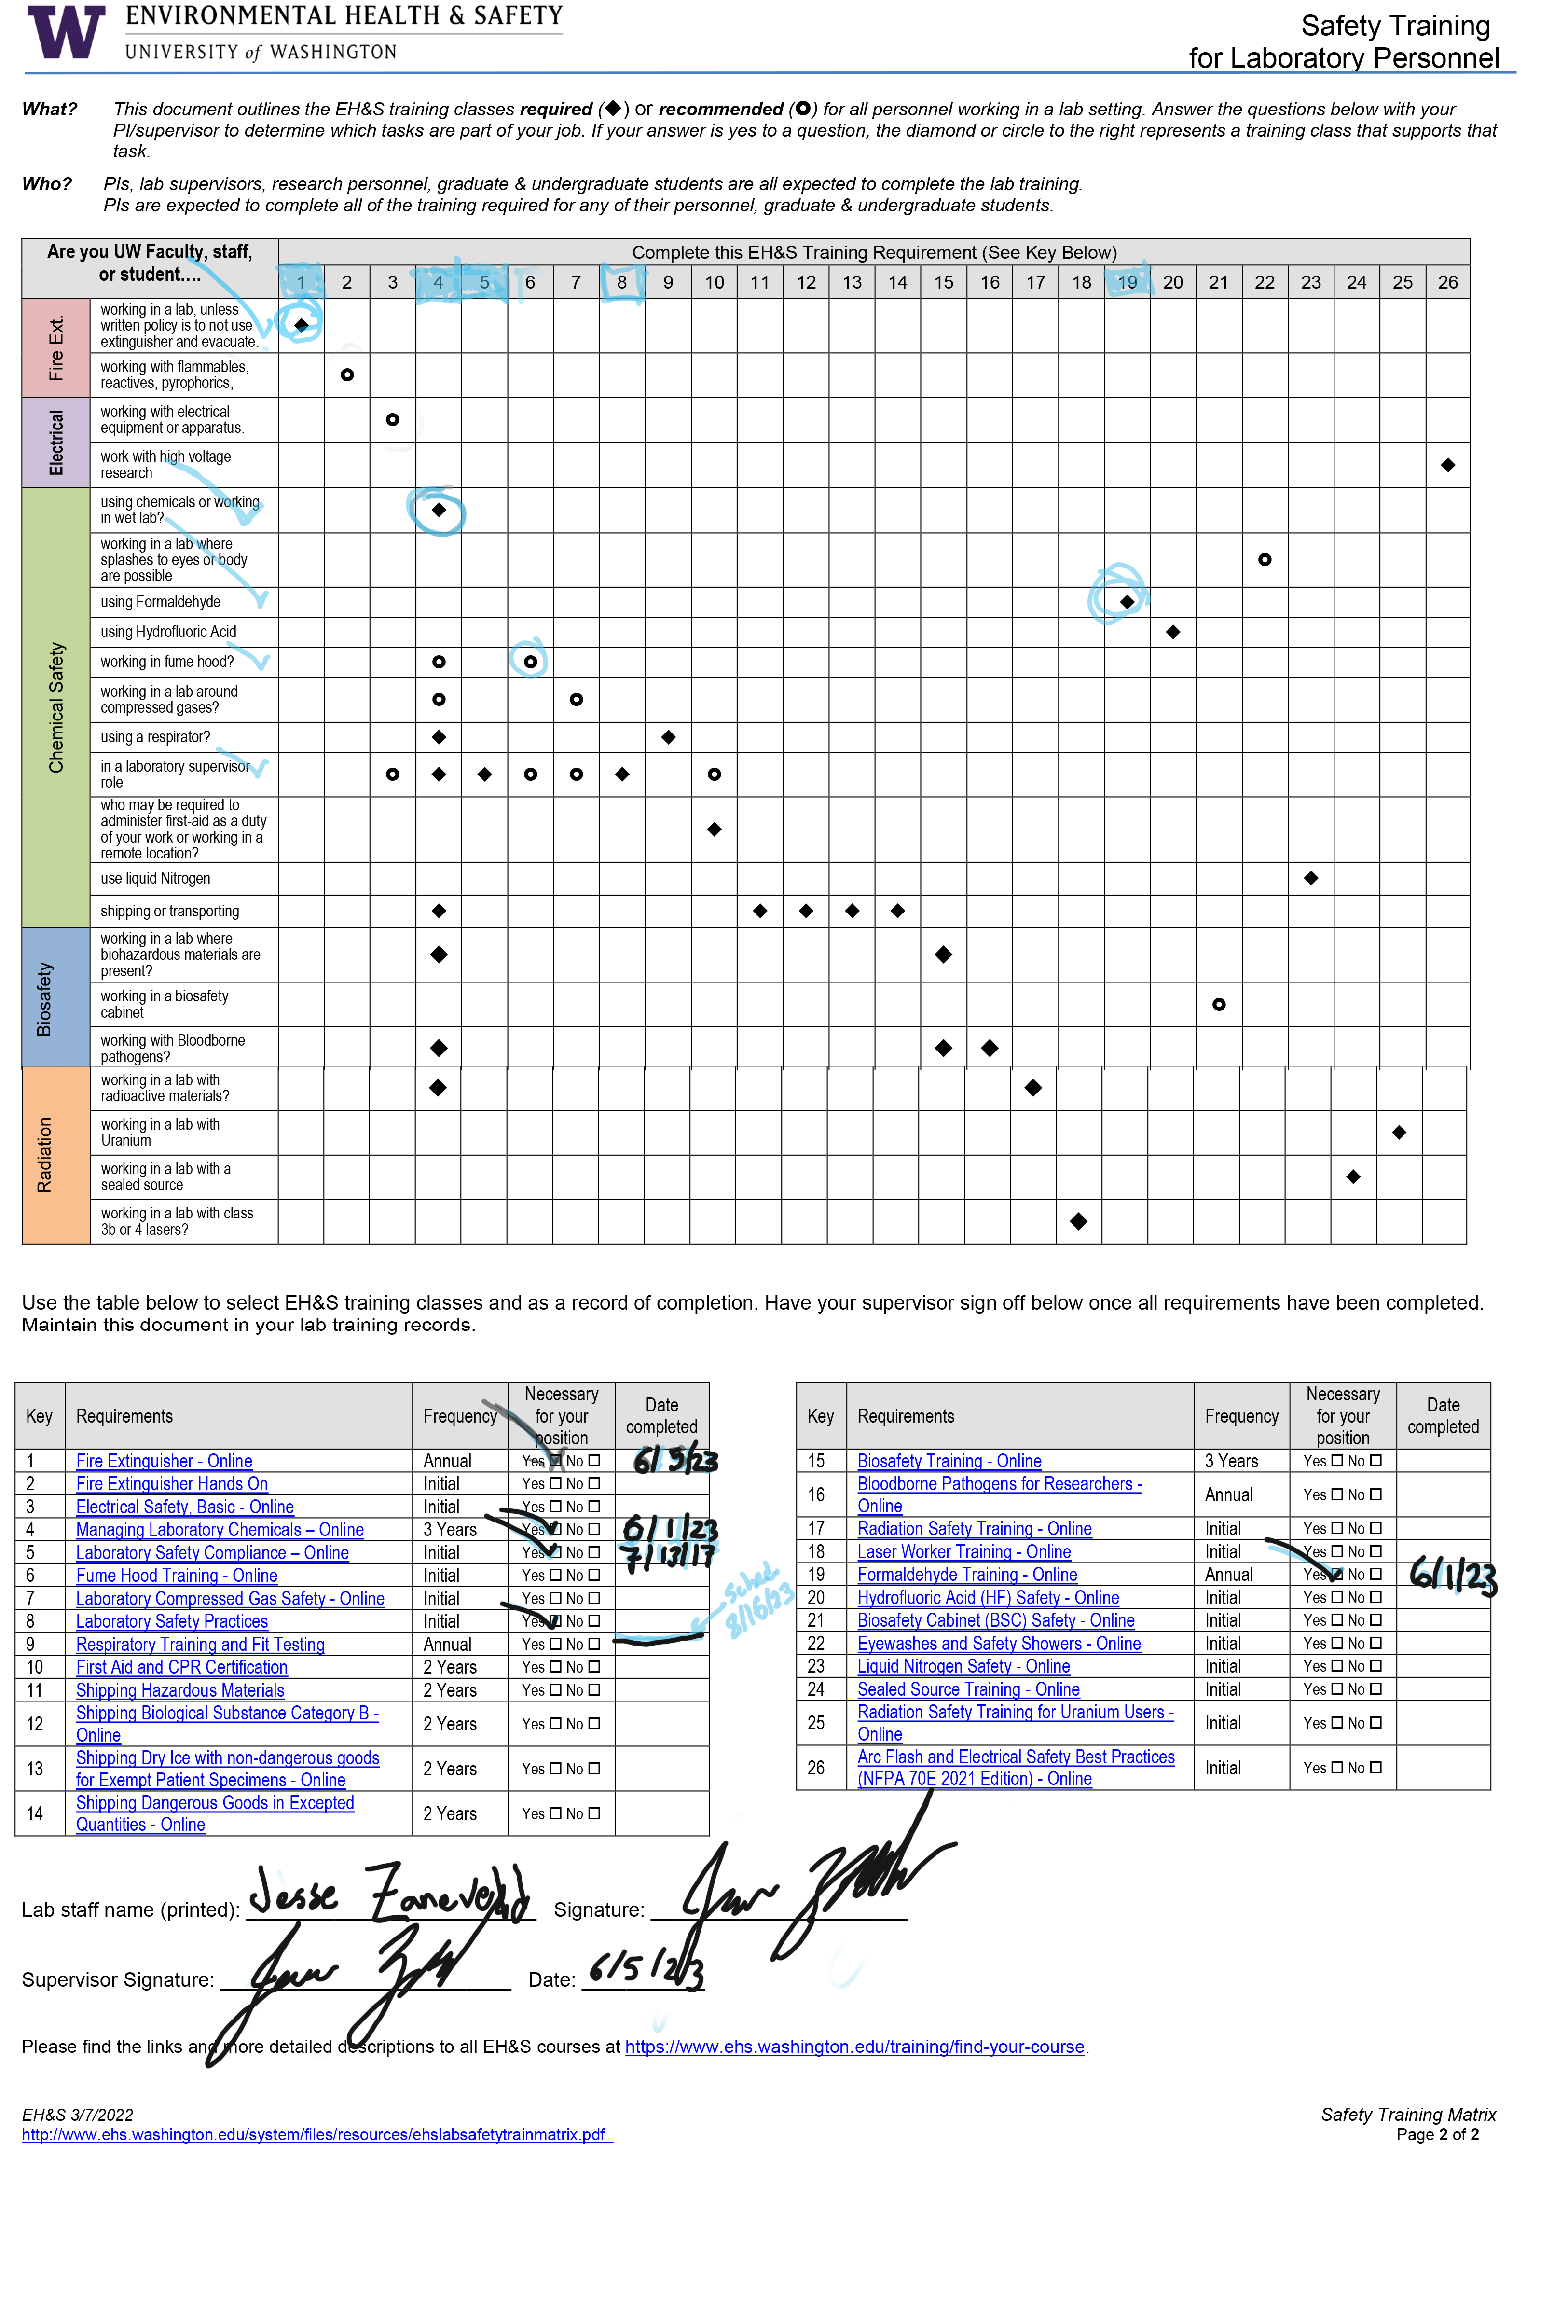 W ENVIRONMENTAL HEALTH & SAFETY
UNIVERSITY of WASHINGTON
Safety Training
for Laboratory Personnel
What? This document outlines the EH&S training classes required (◆) or recommended (O) for all personnel working in a lab setting. Answer the questions below with your
PI/supervisor to determine which tasks are part of your job. If your answer is yes to a question, the diamond or circle to the right represents a training class that supports that
task.
Who? PIs, lab supervisors, research personnel, graduate & undergraduate students are all expected to complete the lab training.
PIs are expected to complete all of the training required for any of their personnel, graduate & undergraduate students.
Are you UW Faculty, staff,
or student….
Complete this EH&S Training Requirement (See Key Below)
1 2 3 4 5 6 7 8 9 10 11 12 13 14 15 16 17 18 19 20 21 22 23 24 25 26
Fire Ext.
working in a lab, unless
written policy is to not use
extinguisher and evacuate.
working with flammables,
reactives, pyrophorics,
Electrical
working with electrical
equipment or apparatus.
work with high voltage
research
Chemical Safety
using chemicals or working
in wet lab?
working in a lab where
splashes to eyes or body
are possible
using Formaldehyde
using Hydrofluoric Acid
working in fume hood?
working in a lab around
compressed gases?
using a respirator?
in a laboratory supervisor
role
who may be required to
administer first-aid as a duty
of your work or working in a
remote location?
use liquid Nitrogen
shipping or transporting
Biosafety
working in a lab where
biohazardous materials are
present?
working in a biosafety
cabinet
working with Bloodborne
pathogens?
Radiation
working in a lab with
radioactive materials?
working in a lab with
Uranium
working in a lab with a
sealed source
working in a lab with class
3b or 4 lasers?
Use the table below to select EH&S training classes and as a record of completion. Have your supervisor sign off below once all requirements have been completed.
Maintain this document in your lab training records.
Key Requirements Frequency Necessary for your position Date completed
1 Fire Extinguisher - Online Annual Yes No 6/5/23
2 Fire Extinguisher Hands On Initial Yes No
3 Electrical Safety, Basic - Online Initial Yes No
4 Managing Laboratory Chemicals – Online 3 Years Yes No 6/1/23
5 Laboratory Safety Compliance – Online Initial Yes No 7/13/17
6 Fume Hood Training - Online Initial Yes No
7 Laboratory Compressed Gas Safety - Online Initial Yes No
8 Laboratory Safety Practices Initial Yes No
sched.
8/16/23
9 Respiratory Training and Fit Testing Annual Yes No
10 First Aid and CPR Certification 2 Years Yes No
11 Shipping Hazardous Materials 2 Years Yes No
12 Shipping Biological Substance Category B -
Online 2 Years Yes No
13 Shipping Dry Ice with non-dangerous goods
for Exempt Patient Specimens - Online 2 Years Yes No
14 Shipping Dangerous Goods in Excepted
Quantities - Online 2 Years Yes No
Key Requirements Frequency Necessary for your position Date completed
15 Biosafety Training - Online 3 Years Yes No
16 Bloodborne Pathogens for Researchers -
Online Annual Yes No
17 Radiation Safety Training - Online Initial Yes No
18 Laser Worker Training - Online Initial Yes No
19 Formaldehyde Training - Online Annual Yes No 6/1/23
20 Hydrofluoric Acid (HF) Safety - Online Initial Yes No
21 Biosafety Cabinet (BSC) Safety - Online Initial Yes No
22 Eyewashes and Safety Showers - Online Initial Yes No
23 Liquid Nitrogen Safety - Online Initial Yes No
24 Sealed Source Training - Online Initial Yes No
25 Radiation Safety Training for Uranium Users -
Online Initial Yes No
26 Arc Flash and Electrical Safety Best Practices
(NFPA 70E 2021 Edition) - Online Initial Yes No
Lab staff name (printed): Jesse Zaneveld Signature:
Supervisor Signature: Date: 6/5/23
Please find the links and more detailed descriptions to all EH&S courses at https://www.ehs.washington.edu/training/find-your-course.
EH&S 3/7/2022
http://www.ehs.washington.edu/system/files/resources/ehslabsafetytrainmatrix.pdf
Safety Training Matrix
Page 2 of 2